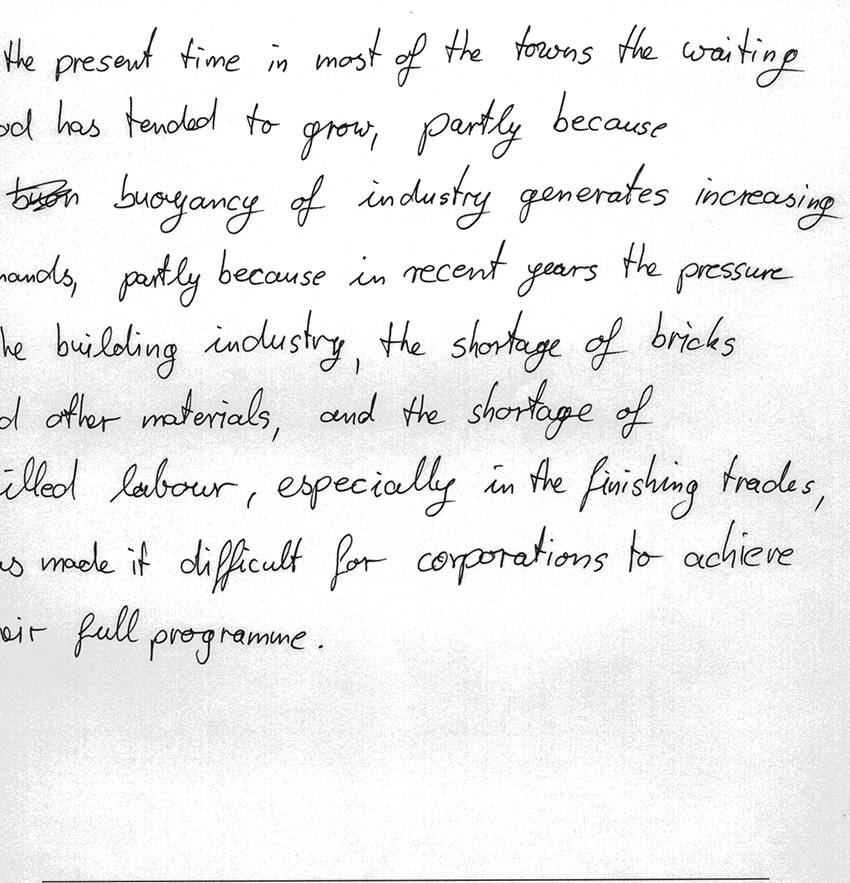 the present time in most of the towns the waiting
od has tended to grow, partly because
buoyancy of industry generates increasing
hands, partly because in recent years the pressure
he building industry, the shortage of bricks
d other materials, and the shortage of
illed labour, especially in the finishing trades,
as made it difficult for corporations to achieve
eir full programme.